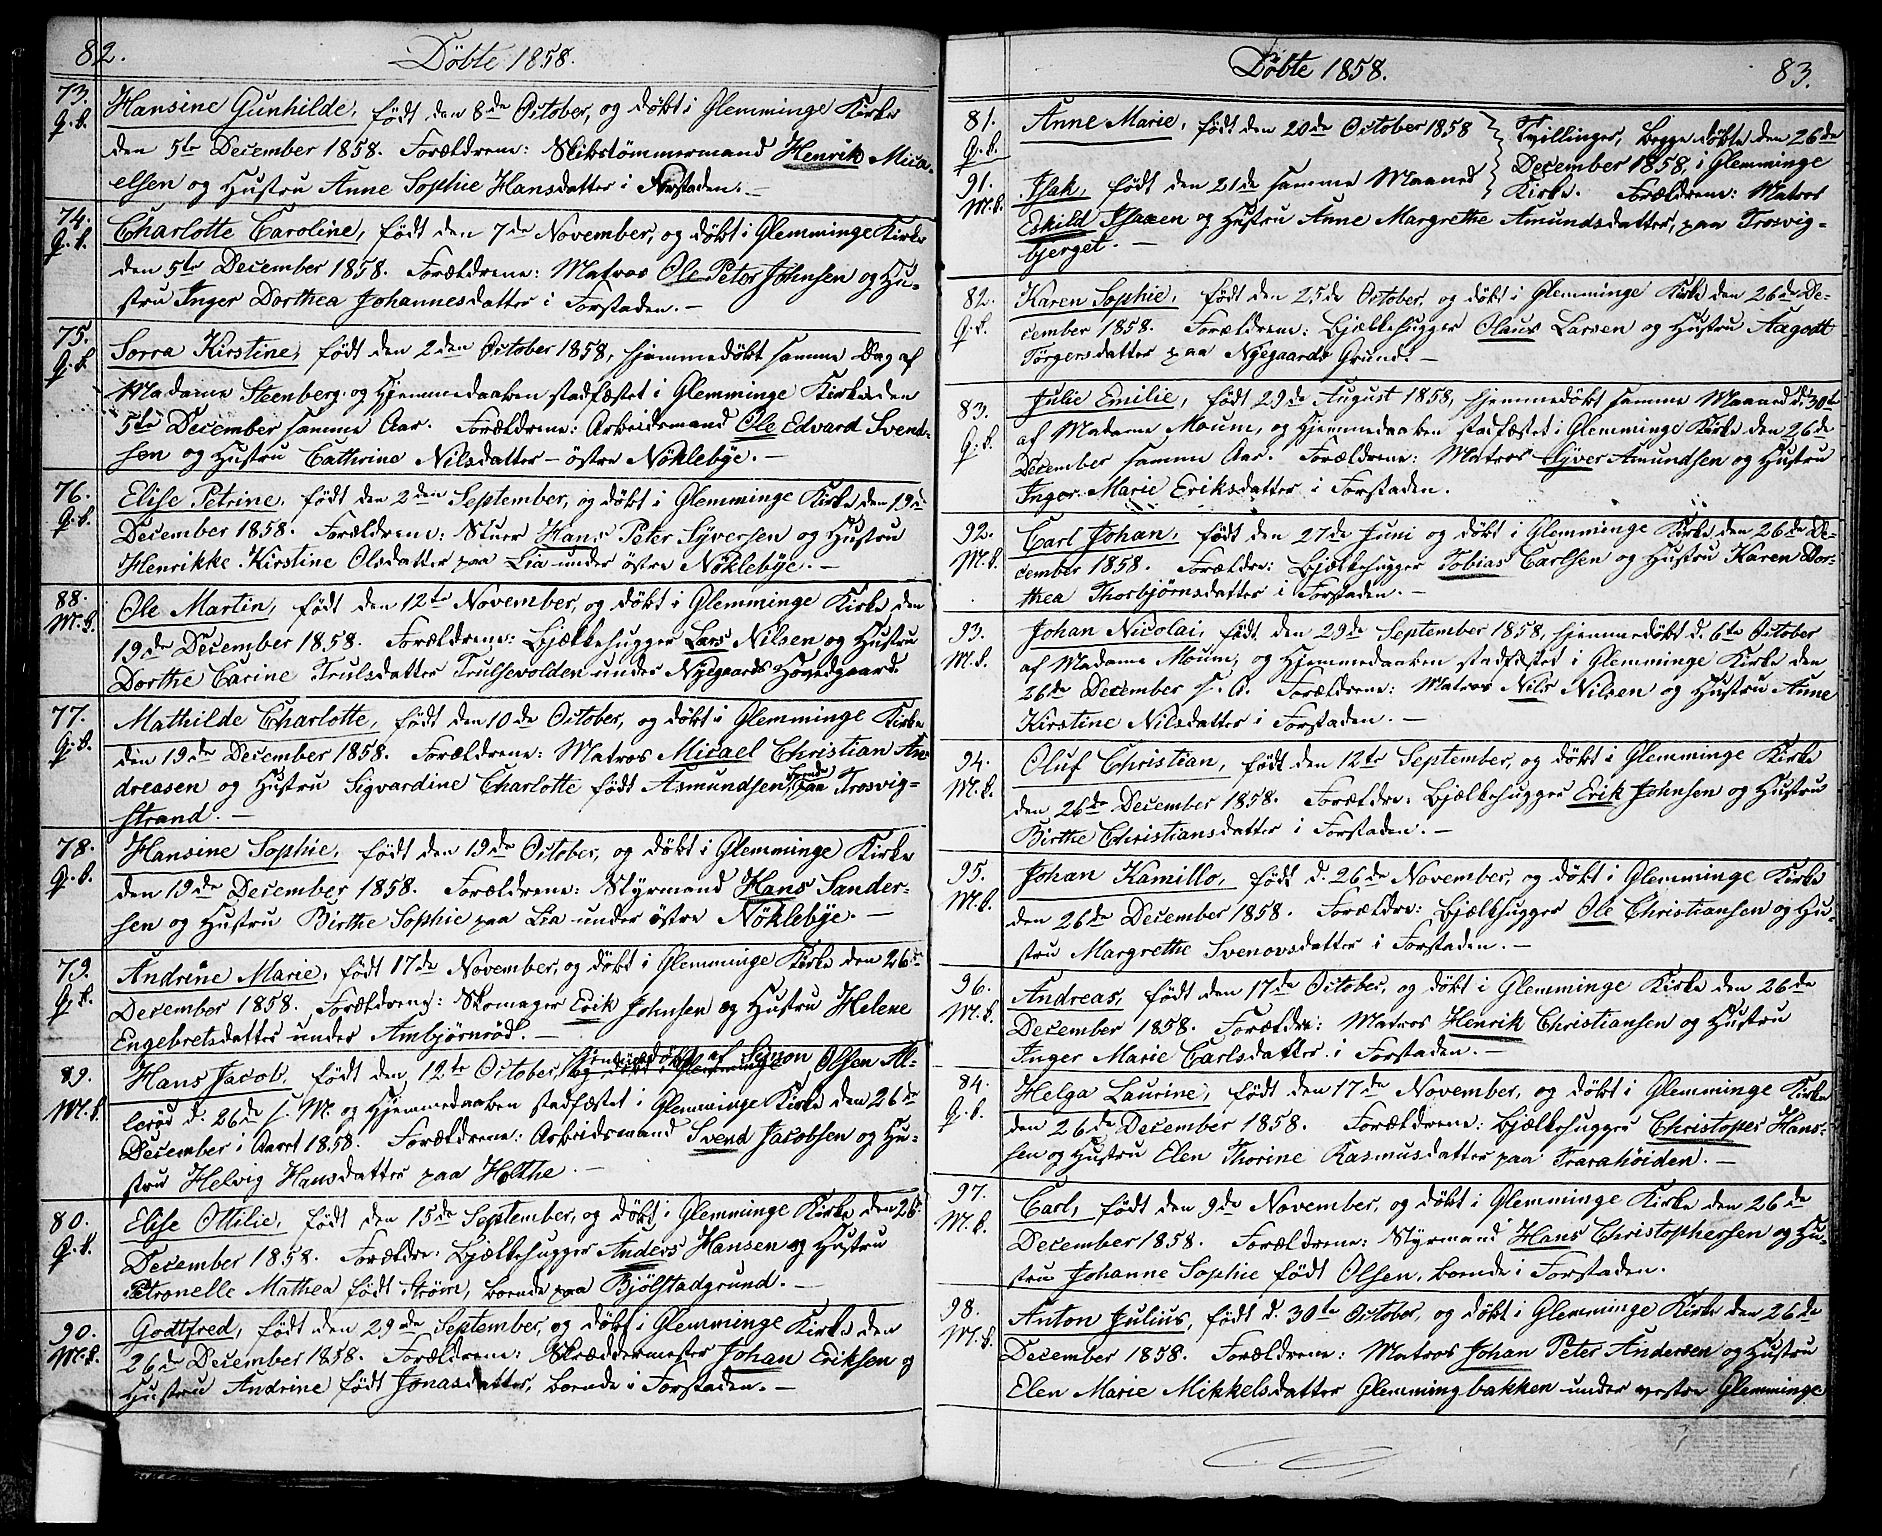 82.
Döbte 1858.
73. Hansine Gunhilde, født den 8de October, og døbt i Glemminge Kirke
G.b. den 5te December 1858. Forældrene: Skibstømmermand Henrik Mica-
elsen og Hustru Anne Sophie Hansdatter i Forstaden. -
74. Charlotte Caroline, født den 7de November, og døbt i Glemminge Kirke
G.b. den 5te December 1858. Forældrene: Matros Ole Peter Johnsen og Hu-
stru Inger Dorthea Johannesdatter i Forstaden. -
75. Sorra Kirstine, født den 2den October 1858, hjemmedøbt samme Dag af
G.b. Madame Steenberg og Hjemmedaaben stadfæstet i Glemminge Kirke den
5te December samme Aar. Forældrene: Arbeidsmand Ole Edvard Svend-
sen og Hustru Cathrine Nilsdatter - østre Nöklebye. -
76. Elise Petrine, født den 2den September, og døbt i Glemminge Kirke den 19de
G.b. December 1858. Forældrene: Stuer Hans Peter Syversen og Hustru
Henrikke Kirstine Olsdatter paa Lia under østre Nöklebye. -
88. Ole Martin, født den 12te November, og døbt i Glemminge Kirke den
M.b. 19de December 1858. Forældrene: Bjælkehugger Lars Nilsen og Hustru
Dorthe Carine Trulsdatter Trulsevolden under Nygaards Hovedgaard
77. Mathilde Charlotte, født den 10de October, og døbt i Glemminge Kirke
G.b. den 19de December 1858. Forældrene: Matros Micael Christian An-
dreasen og Hustru Sigvardine Charlotte født Asmundsen, boende paa Trosvig-
strand. -
78. Hansine Sophie, født den 19de October, og døbt i Glemminge Kirke
G.b. den 19de December 1858. Forældrene: Styrmand Hans Sander-
sen og Hustru Birthe Sophie paa Lia under østre Nöklebye. -
79. Andrine Marie, født 17de November, og døbt i Glemminge Kirke den 26de
G.b. December 1858. Forældrene: Skomager Erik Johnsen og Hustru Helene
Engebretsdatter under Ambjørnröd. -
89. Hans Jacob, født den 12te October, og døbt i Glemminge hjemmedøbt af Simon Olsen Al-
M.b. leröd d. 26de s. M. og Hjemmedaaben stadfæstet i Glemminge Kirke den 26de
December i Aaret 1858. Forældrene: Arbeidsmand Svend Jacobsen og Hu-
stru Helvig Hansdatter paa Holthe. -
80. Elise Ottilie, født den 15de September, og døbt i Glemminge Kirke den 26
G.b. December 1858. Forældre: Bjælkehugger Anders Hansen og Hustru
Petronelle Mathea født Strøm, boende paa Bjölstadgrund. -
90. Godtfred, født den 29de September, og døbt i Glemminge Kirke den
M.b. 26de December 1858. Forældrene: Skræddermester Johan Eriksen og
Hustru Andrine født Jonasdatter, boende i Forstaden. -
Döbte 1858.
83.
81. Anne Marie, født den 20de October 1858 } Tvillinger, begge døbte den 26de
G.b. December 1858, i Glemminge
91. Isak, født den 21de samme Maaned } Kirke. Forældrene: Matros
M.b. Eskild Isaksen og Hustru Anne Margrethe Amundsdatter, paa Trosvig-
bjerget. -
82. Karen Sophie, født den 25de October, og døbt i Glemminge Kirke den 26de De-
G.b. cember 1858. Forældrene: Bjælkehugger Olaus Larsen og Hustru Aagodt
Törgersdatter paa Nygaards Grund. -
83. Julie Emilie, født 29de August 1858, hjemmedøbt samme Maaned d. 30te
G.b. af Madame Moum, og Hjemmedaaben stadfæstet i Glemminge Kirke den 26de
December samme Aar. Forældrene: Matros Syver Amundsen og Hustru
Inger Marie Eriksdatter i Forstaden.
92. Carl Johan, født den 27de Juni og døbt i Glemminge Kirke den 26de De-
M.b. cember 1858. Forældre: Bjælkehugger Tobias Carlsen og Hustru Karen Dor-
thea Thorbjørnsdatter i Forstaden. -
93. Johan Nicolai, født den 29de September 1858, hjemmedøbt d. 6te October
M.b. af Madame Moum, og Hjemmedaaben stadfæstet i Glemminge Kirke den
26de December s. A. Forældrene: Matros Nils Nilsen og Hustru Anne
Kirstine Nilsdatter i Forstaden. -
94. Oluf Christian, født den 12te September, og døbt i Glemminge Kirke
M.b. den 26de December 1858. Forældre: Bjælkehugger Erik Johnsen og Hustru
Birthe Christiansdatter i Forstaden. -
95. Johan Kamillo, født d. 26de November, og døbt i Glemminge Kirke
M.b. den 26de December 1858. Forældre: Bjælkehugger Ole Christiansen og Hu-
stru Margrethe Svenovsdatter i Forstaden. -
96. Andreas, født den 17de October, og døbt i Glemminge Kirke den 26de
M.b. December 1858. Forældre: Matros Henrik Christiansen og Hustru
Inger Marie Carlsdatter i Forstaden. -
84. Helga Laurine, født den 17de November, og døbt i Glemminge Kirke
G.b. den 26de December 1858. Forældrene: Bjælkehugger Christoper Han-
sen og Hustru Elen Thorine Rasmusdatter paa Trarahöiden. -
97. Carl, født den 9de November, og døbt i Glemminge Kirke den 26de
M.b. December 1858. Forældrene: Styrmand Hans Christophersen og Hu-
stru Johanne Sophie født Olsen, boende i Forstaden.
98. Anton Julius, født d. 30te October, og døbt i Glemminge Kirke den 26de
M.b. December 1858. Forældrene: Matros Johan Peter Andersen og Hustru
Elen Marie Mikkelsdatter Glemmingbakken under vestre Glemminge